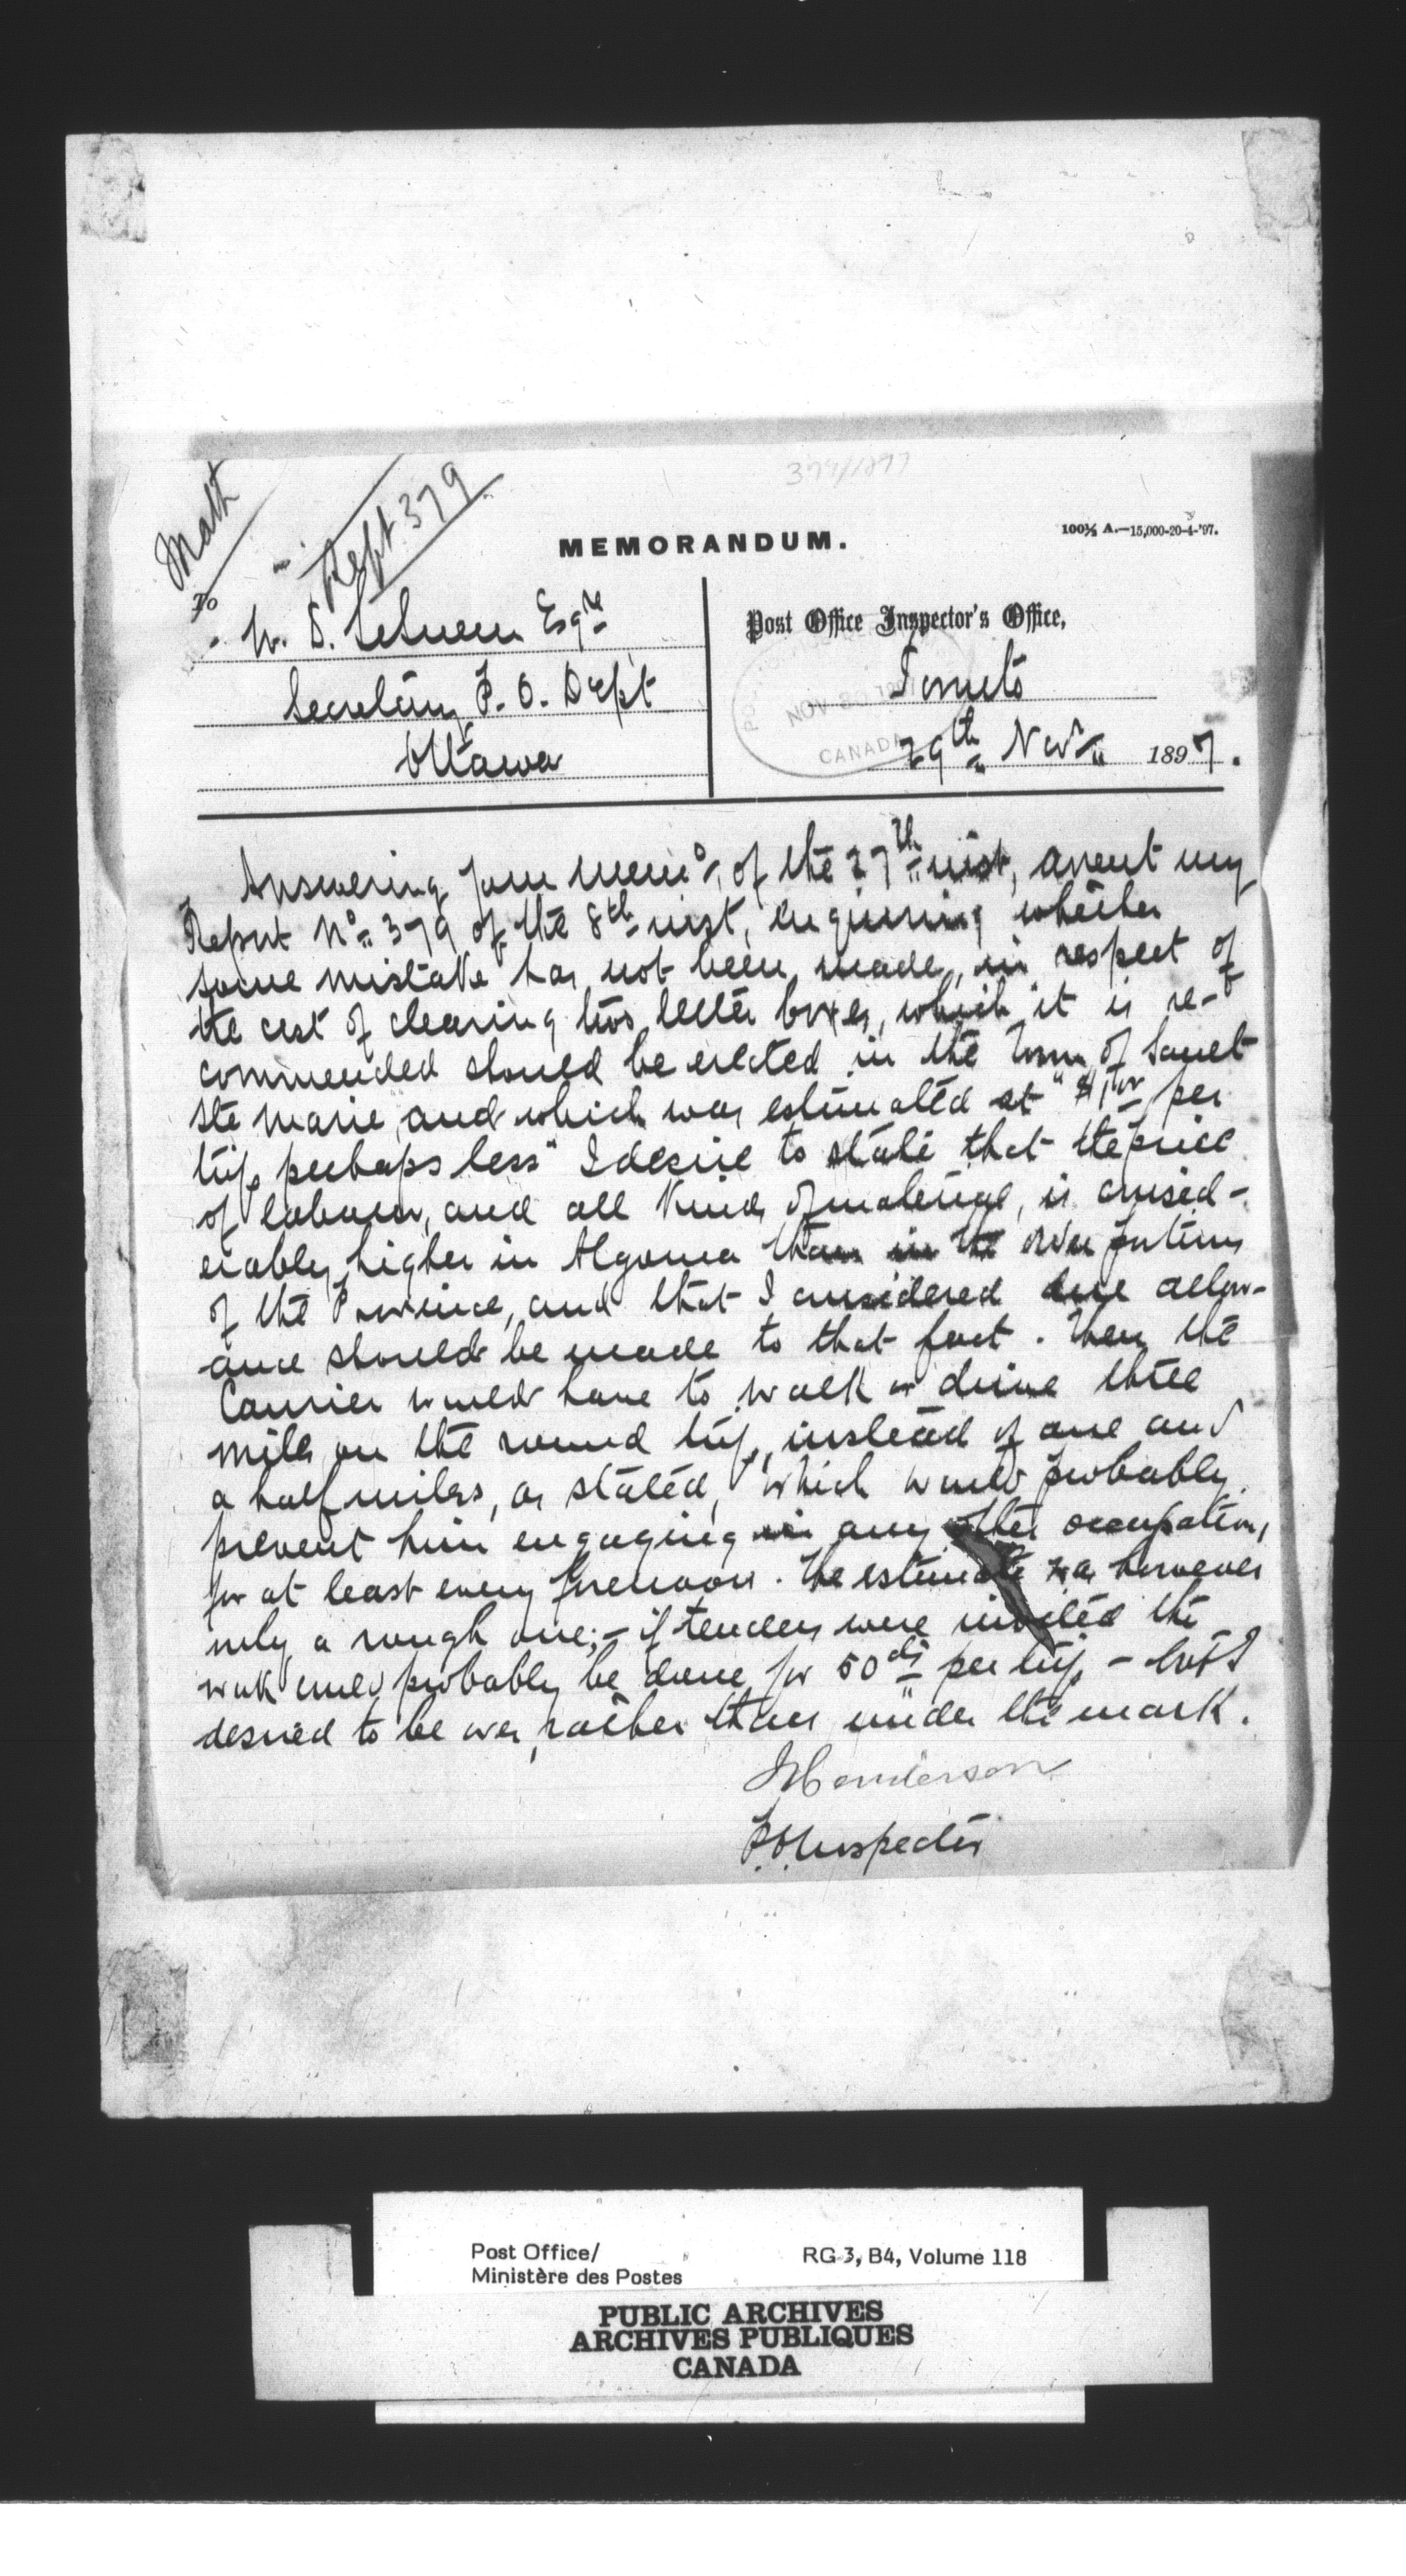 379/1897
Math
Rept 379
MEMORANDUM.
100½ A.—15,000-20-4-'97.
To
W. D. LeSueur Esqre
Secretary P. O. Dept
Ottawa
Post Office Inspector's Office,
Toronto
29th Novr 1897.
NOV 30 1897
CANADA
Answering your memo, of the 27th inst, anent my
Report No 379 of the 8th inst, enquiring whether
some mistake has not been made, in respect of
the cost of clearing two letter boxes, which it is re-
commended should be erected in the Town of Sault
Ste Marie, and which was estimated at "$1.00 per
trip, perhaps less" I desire to state that the price
of labour, and all kinds of material, is consid-
erably higher in Algoma than in the older portions
of the Province, and that I considered due allow-
ance should be made to that fact. Then the
Courier would have to walk or drive three
miles on the round trip, instead of one and
a half miles, as stated, which would probably
prevent him engaging in any other occupation,
for at least every forenoon. The estimate was however
only a rough one; - if tenders were invited the
work could probably be done for 50cts per trip, - but I
desired to be over, rather than under the mark.
J Henderson
P.O. Inspector
Post Office/
Ministère des Postes
RG 3, B4, Volume 118
PUBLIC ARCHIVES
ARCHIVES PUBLIQUES
CANADA